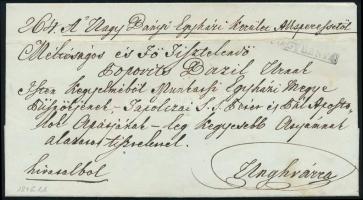 264. A Nagy Dányi Egyházi Kerület Alesperessétöl
Méltóságos és Fö Tisztelendö
Popovits Bazil Urnak
Isten Kegyelméböl Munkácsi Egyházi Megye
Püspökjének - Tapolczai S. S. Péter és Pál Aposto-
lok Apátjának - leg Kegyesebb Atyámnak
alázatos tisztelettel.
hivatalból
Unghvárra